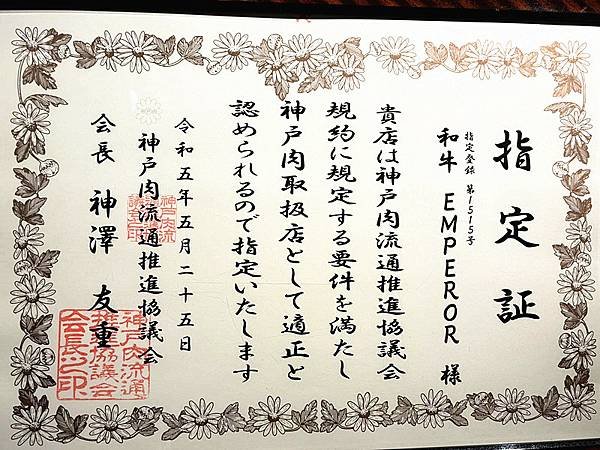 指定証
指定登録 第1515号
和牛 EMPEROR 様
貴店は神戸肉流通推進協議会
規約に規定する要件を満たし
神戸肉取扱店として適正と
認められるので指定いたします
令和五年五月二十五日
神戸肉流通推進協議会
会長 神澤 友重
神戸肉流通
推進協議会
会長之印